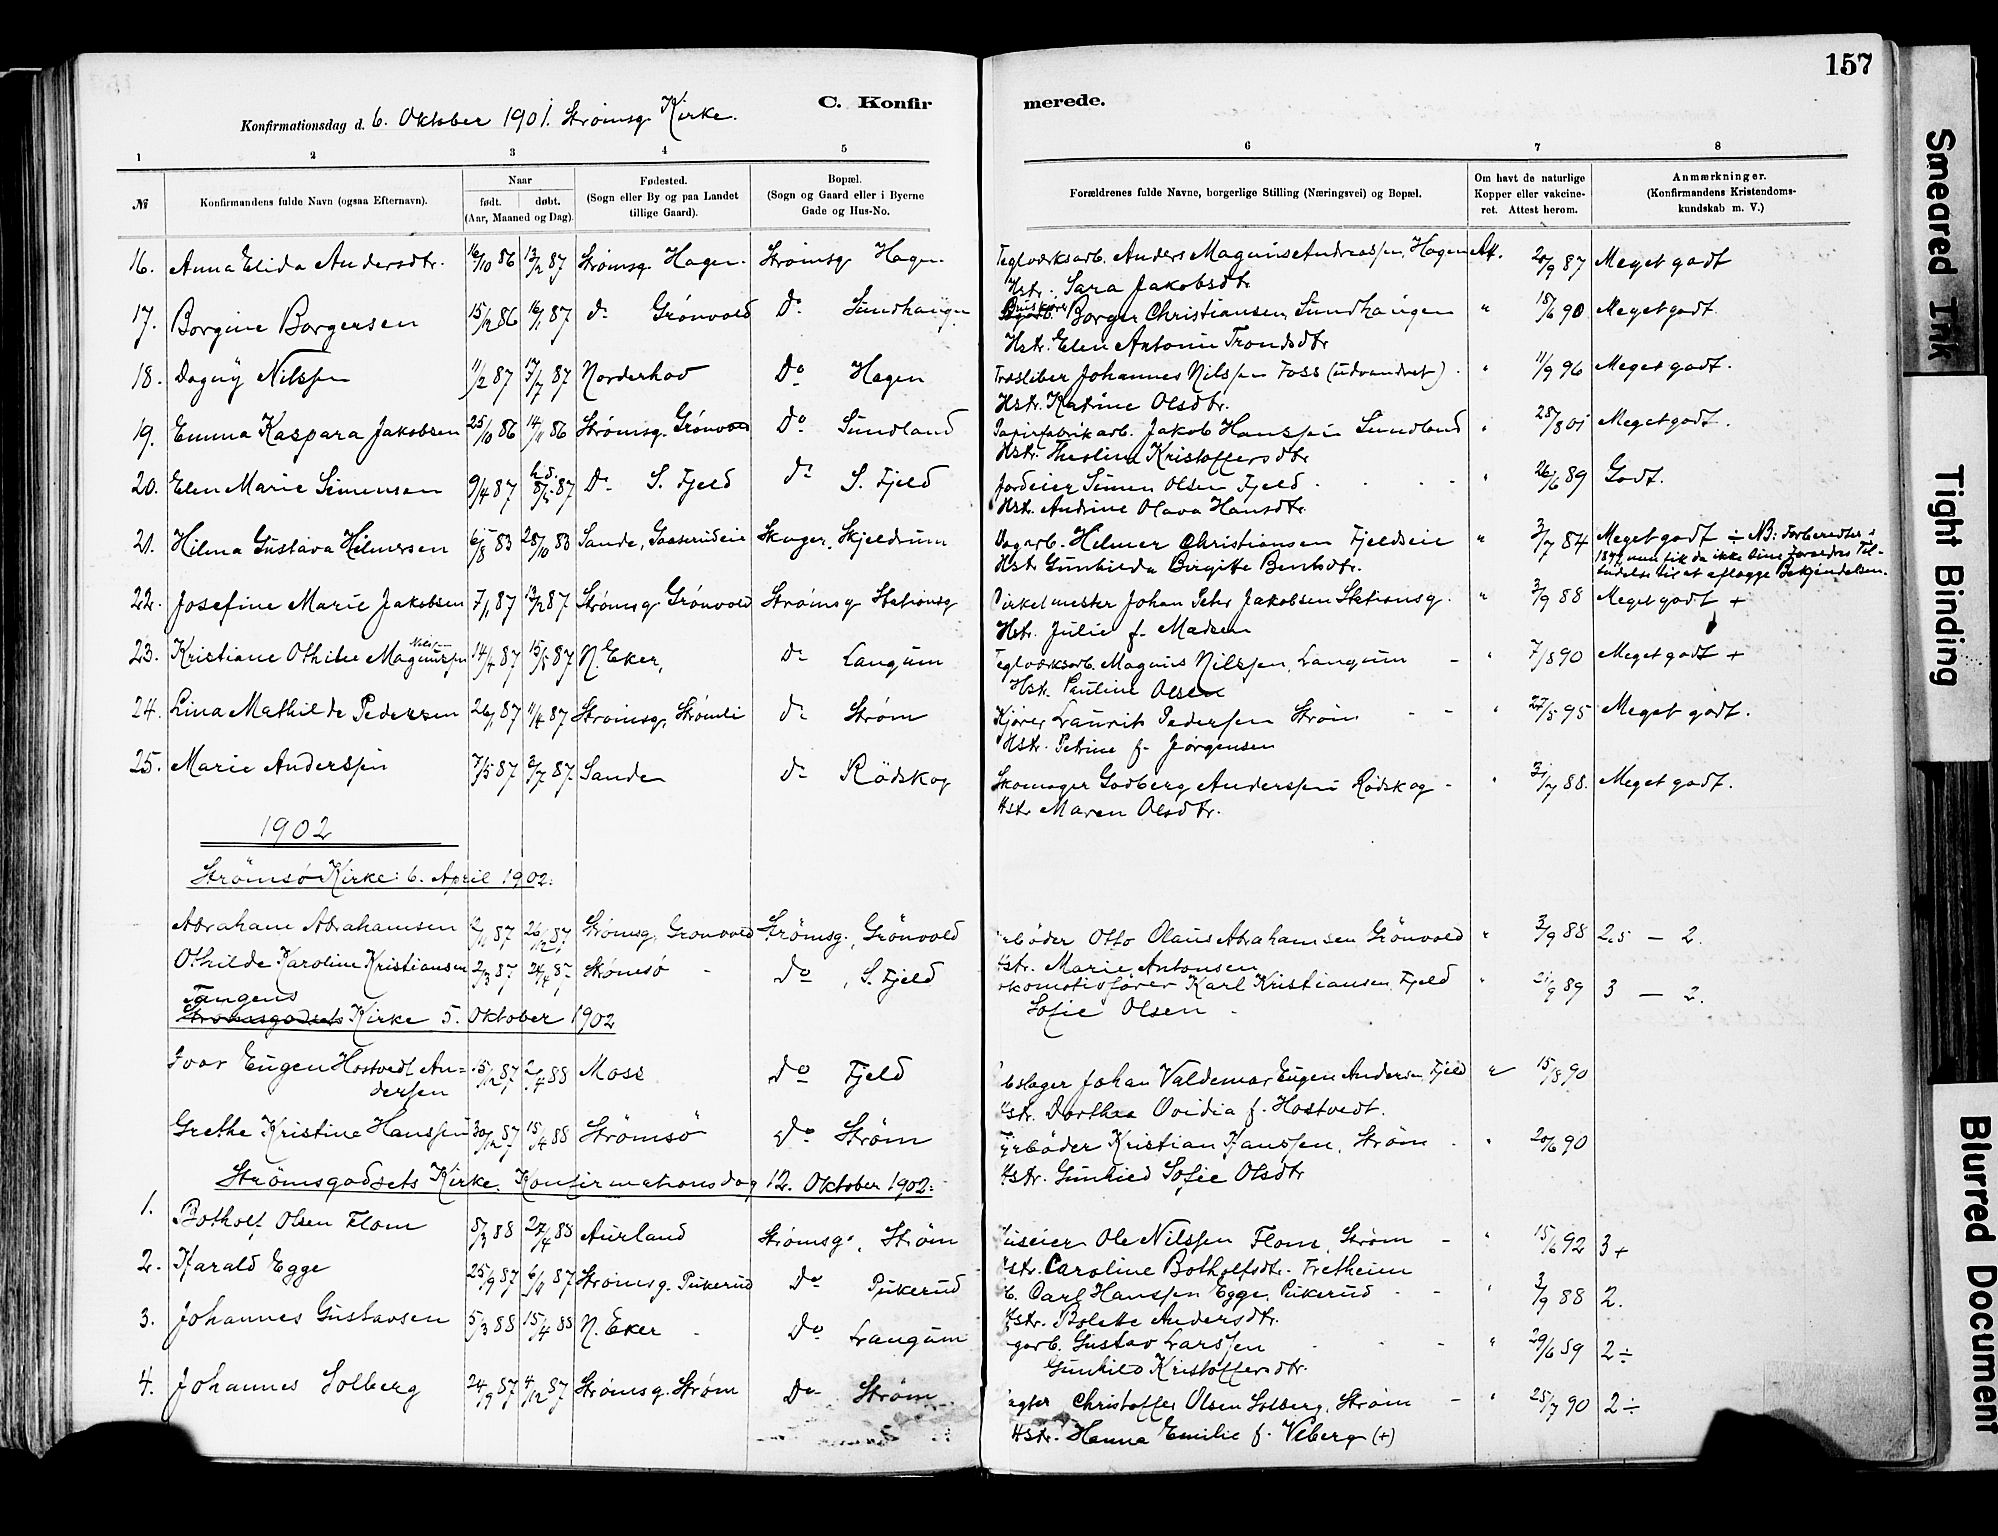 157
C. Konfir
merede.
Konfirmationsdag d. 6. Oktober 1901. Strømsg. Kirke.
1 2 3 4 5 6 7 8
№ Konfirmandens fulde Navn (ogsaa Efternavn). Naar født. døbt. (Aar, Maaned og Dag). Fødested. (Sogn eller By og paa Landet tillige Gaard). Bopæl. (Sogn og Gaard eller i Byerne Gade og Hus-No. Forældrenes fulde Navne, borgerlige Stilling (Næringsvei) og Bopæl. Om havt de naturlige Kopper eller vakcineret. Attest herom. Anmærkninger. (Konfirmandens Kristendomskundskab m. V.)
16. Anna Elida Andersdtr. 16/10 86 13/2 87 Strømsg. Hagen. Strømsg Hagen. Teglværksarb. Anders Magnus Andreassen, Hagen Att. 20/9 87 Meget godt
Hstr. Sara Jakobsdtr
17. Borgine Borgersen 15/12 86 16/1 87 do Grönvold Do Sundhaugen Borger Christiansen Sundhaugen " 18/6 90 Meget godt.
Hstr. Elen Antonie Trondsdtr
18. Dagny Nilssen 11/2 87 17/7 87 Norderhov Do Hagen Træsliber Johannes Nilssen Foss (udvandret). " 11/9 96 Meget godt.
Hstr. Katrine Olsdtr.
19. Emma Kaspara Jakobsen 25/10 86 14/11 86 Strømsg. Grönvold Do Sundland Papirfabrikarb. Jakob Hanssen Sundland " 28/8 01 Meget godt.
Hstr. Theoline Kristoffersdtr
20. Elen Marie Simensen 9/4 87 hd. 8/5 87 Do S. Fjeld do S. Fjeld Jordeier Simen Olsen Fjeld - " 26/6 89 Godt.
Hstr. Andrine Olava Hansdtr.
21. Hilma Gustava Hilmersen 6/8 83 28/10 83 Sande, Gaaserudeie Skoger, Skjeldrum Dagarb. Helmer Christiansen Fjeldseie " 3/7 84 Meget godt ÷ NB: Forberedtes i
Hstr Gunhilda Birgitte Bentsdtr. men fik da ikke sine Forældres Tilladelse til at aflægge Bekjendelsen.
22. Josefine Marie Jakobsen 7/1 87 13/2 87 Strømsg Grönvold Strømsg Stationsg Cirkelmester Johan Petr Jakobsen Stationsg. " 3/9 88 Meget godt +
Hstr. Julie f. Madsen
23. Kristiane Othilie Magnussen Nilssen 14/4 87 15/5 87 N. Eker, do Langum Teglværksarb. Magnus Nilssen, Langum - " 7/8 90 Meget godt +
Hstr. Pauline Olsen
24. Lina Mathilde Pedersen 26/1 87 11/4 87 Strømsg, Strømli do Strøm Kjører Laurits Pedersen Strøm - - " 22/5 95 Meget godt.
Hstr. Petrine f. Jørgensen
25. Marie Anderssen 7/5 87 2/7 87 Sande do Rödskog Skomager Godberg Anderssen Rödskog - " 31/7 88. Meget godt.
Hstr Maren Olsdtr.
1902
Strömsö Kirke: 6. April 1902:
Abraham Abrahamsen 12/11 87 26/12 87 Strømsg. Grönvold Strömsg., Grönvold Otto Olaus Abrahamsen Grönvold " 3/9 88 2.5 — 2.
Hstr. Marie Antonsen
Othilde Karoline Kristiansen 2/3 87 24/4 87 Strömsö - Do, S. Fjeld Lokomotivfører Karl Kristiansen, Fjeld " 21/9 89 3 — 2.
Sofie Olsen -
Tangens
Strømsgodsets Kirke 5. Oktober 1902
Ivar Eugen Hostvedt An=
dersen 15/12 87 2/4 88 Moss Do Fjeld Johan Valdemar Eugen Andersen, Fjeld " 15/8 90
Hstr. Dorthea Ovidia f. Hostvedt.
Grethe Kristine Hanssen 30/12 87 15/4 88 Strömsö Do Strøm Fyrbøder Kristian Hanssen, Strøm - " 20/6 90
Hstr. Gunhild Sofie Olsdtr
Strömsgodsets Kirke. Konfirmationsdag 12. Oktober 1902:
1. Botholf Olsen Flom 8/3 88 27/4 88 Aurland Strømsg., Strøm Huseier Ole Nilssen Flom, Strøm - " 15/6 92 3+
Hstr. Caroline Botholfsdtr. Fretheim
2. Harald Egge 25/9 87 6/11 87 Strømsg. Pukerud Do Pukerud Carl Hanssen Egge, Pukerud - - " 3/9 88 2.
Hstr. Bolette Andersdtr.
3. Johannes Gustavsen 5/3 88 15/4 88 N. Eker - Do Langum Gustav Larssen - - " 29/6 89 2÷
Gunhild Kristoffersdtr.
4. Johannes Solberg 24/9 87 4/12 87 Strømsg. Strøm Do Strøm Christoffer Olsen Solberg, Strøm - " 25/7 90 2÷
Hstr. Hanna Emilie f. Viberg (+)
Smeared Ink
Tight Binding
Blurred Document